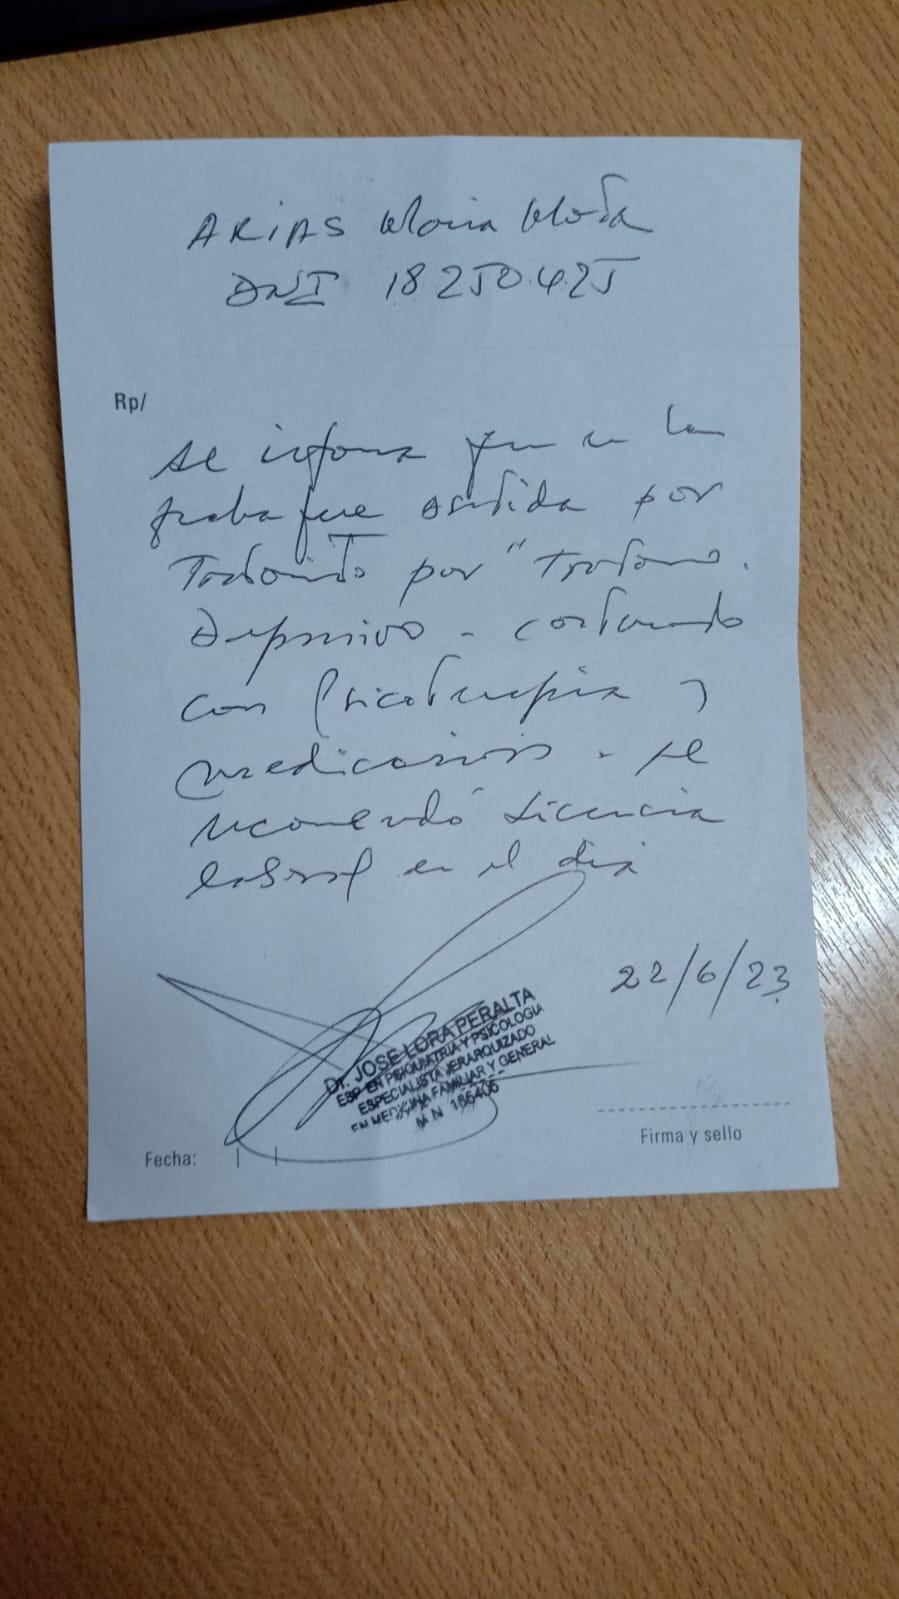 ARIAS
DNI 18250425
Rp/
se informa que en la
fue asistida por
Tratamiento por "Trastorno
Depresivo - continuando
con Psicoterapia y
medicación - se
recomendó Licencia
laboral en el día
22/6/23
Dr. JOSE LORA PERALTA
ESP EN PSIQUIATRIA Y PSICOLOGIA
ESPECIALISTA JERARQUIZADO
EN MEDICINA FAMILIAR Y GENERAL
M N
Fecha:
Firma y sello